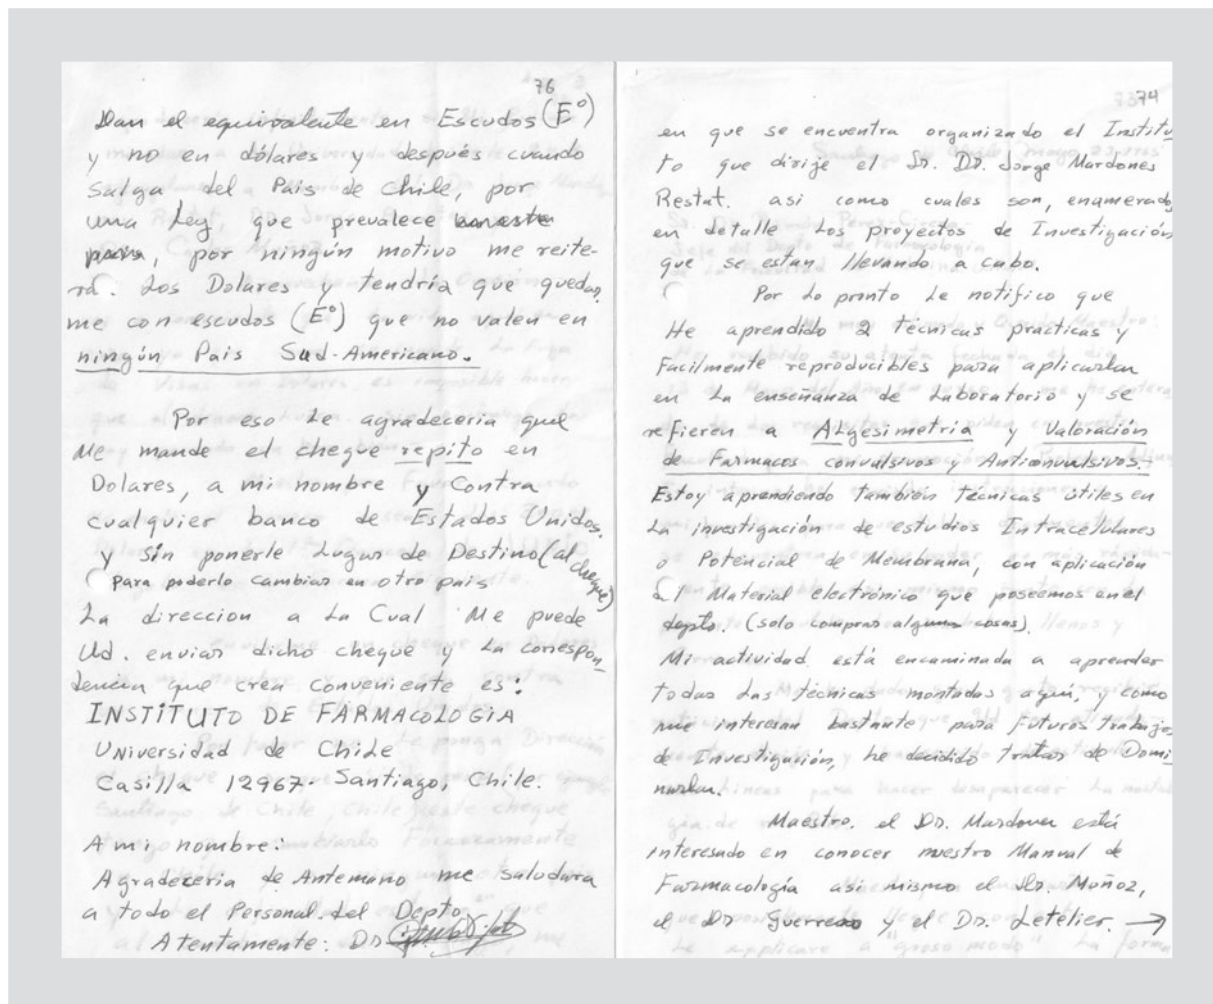 76
Dan el equivalente en Escudos (Eº)
y no en dólares y después cuando
Salga del Pais de Chile, por
una Ley, que prevalece
, por ningún motivo me reite-
ra. Los Dolares y tendría que quedar
me con escudos (Eº) que no valen en
ningún Pais Sud-Americano.
Por eso Le agradeceria que
Me mande el cheque repito en
Dolares, a mi nombre y Contra
cualquier banco de Estados Unidos.
y sin ponerle Lugar de Destino (al cheque)
para poderlo cambiar en otro pais
La direccion a La Cual Me puede
Ud. enviar dicho cheque y La correspon-
dencia que crea conveniente es:
INSTITUTO DE FARMACOLOGIA
Universidad de Chile
Casilla 12967. Santiago, Chile.
A mi nombre:
Agradeceria de Antemano me saludara
a todo el Personal del Depto
Atentamente: Dr.
74
en que se encuentra organizado el Institu
to que dirije el Sr. Dr. Jorge Mardones
Restat. asi como cuales son, enumerados
en detalle Los proyectos de Investigación
que se estan llevando a cabo.
Por Lo pronto Le notifico que
He aprendido 2 técnicas practicas y
Facilmente reproducibles para aplicarlas
en La enseñanza de Laboratorio y se
refieren a ALgesimetria y Valoración
de Farmacos convulsivos y Anticonvulsivos.
Estoy aprendiendo también técnicas útiles en
La investigación de estudios Intracelulares
o Potencial de Membrana, con aplicación
al Material electrónico que poseemos en el
depto. (solo comprar algunas cosas).
Mi actividad está encaminada a aprender
todas Las técnicas montadas aquí, y como
me interesan bastante para Futuros trabajos
de Investigación, he decidido tratar de Domi-
narlas.
Maestro. el Dr. Mardones está
interesado en conocer nuestro Manual de
Farmacología asi mismo el Dr. Muñoz,
el Dr Guerrero y el Dr. Letelier. →